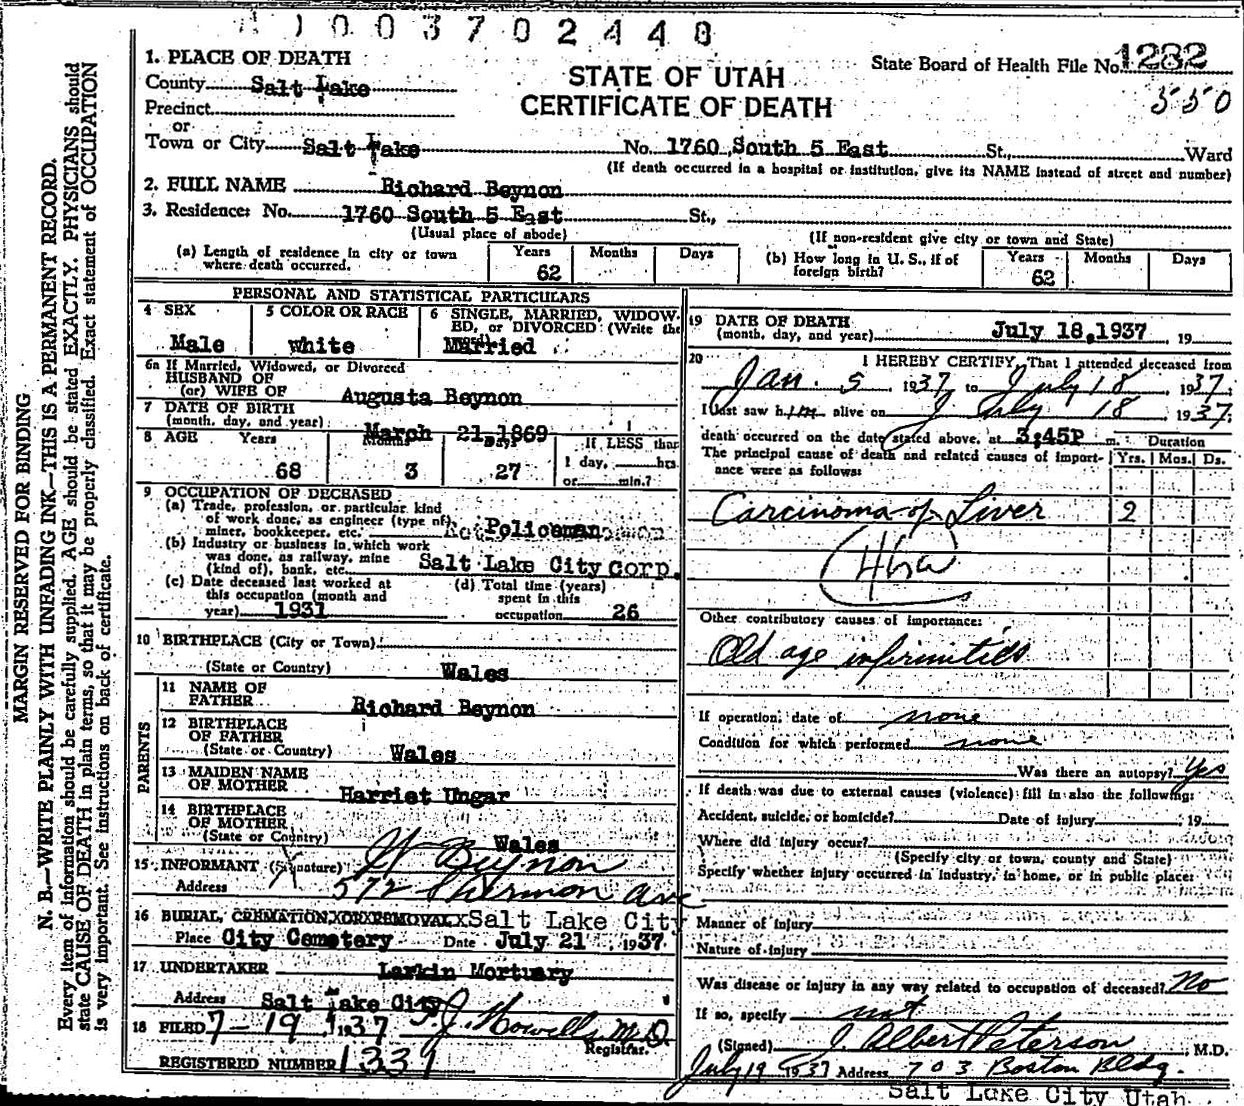 1003702440
1. PLACE OF DEATH
County Salt Lake
Precinct
or
Town or City Salt Lake
STATE OF UTAH
CERTIFICATE OF DEATH
State Board of Health File No. 1282
550
No. 1760 South 5 East St., Ward
(If death occurred in a hospital or institution, give its NAME instead of street and number)
2. FULL NAME Richard Beynon
3. Residence: No. 1760 South 5 East St.,
(Usual place of abode) (If non-resident give city or town and State)
(a) Length of residence in city or town where death occurred. Years 62 Months Days
(b) How long in U. S., if of foreign birth? Years 62 Months Days
PERSONAL AND STATISTICAL PARTICULARS
4 SEX Male
5 COLOR OR RACE white
6 SINGLE, MARRIED, WIDOWED, or DIVORCED (Write the word) Married
6a If Married, Widowed, or Divorced
HUSBAND OF
(or) WIFE OF Augusta Beynon
7 DATE OF BIRTH
(month, day, and year) March 21, 1869
8 AGE Years 68 Months 3 Days 27
If LESS than
1 day, hrs.
or min.?
9 OCCUPATION OF DECEASED
(a) Trade, profession, or particular kind
of work done, as engineer (type of),
miner, bookkeeper, etc. Policeman
(b) Industry or business in which work
was done, as railway, mine
(kind of), bank, etc. Salt Lake City Corp.
(c) Date deceased last worked at
this occupation (month and
year) 1931
(d) Total time (years)
spent in this
occupation 26
10 BIRTHPLACE (City or Town)
(State or Country) Wales
PARENTS
11 NAME OF
FATHER Richard Beynon
12 BIRTHPLACE
OF FATHER
(State or Country) Wales
13 MAIDEN NAME
OF MOTHER Harriet Ungar
14 BIRTHPLACE
OF MOTHER
(State or Country) Wales
15 INFORMANT (Signature) W Beynon
Address 572 Sherman Ave
16 BURIAL, CREMATION, OR REMOVAL Salt Lake City
Place City Cemetery Date July 21, 1937
17 UNDERTAKER Larkin Mortuary
Address Salt Lake City
18 FILED 7-19, 1937 J. Howells M.D.
Registrar.
REGISTERED NUMBER 1339
19 DATE OF DEATH
(month, day, and year) July 18, 1937, 19
20 I HEREBY CERTIFY, That I attended deceased from
Jan. 5, 1937 to July 18, 1937.
I last saw him alive on July 18 1937.
death occurred on the date stated above, at 3;45P m. Duration
The principal cause of death and related causes of importance were as follows: Yrs. Mos. Ds.
Carcinoma of Liver 2
Other contributory causes of importance:
Old age infirmities
If operation, date of none
Condition for which performed none
Was there an autopsy? Yes
If death was due to external causes (violence) fill in also the following:
Accident, suicide, or homicide? Date of injury , 19
Where did injury occur?
(Specify city or town, county and State)
Specify whether injury occurred in industry, in home, or in public place:
Manner of injury
Nature of injury
Was disease or injury in any way related to occupation of deceased? No
If so, specify not
(Signed) J. Albert Peterson, M.D.
July 19 1937 Address 703 Boston Bldg.
Salt Lake City Utah
MARGIN RESERVED FOR BINDING
N. B.—WRITE PLAINLY WITH UNFADING INK—THIS IS A PERMANENT RECORD.
Every item of information should be carefully supplied. AGE should be stated EXACTLY. PHYSICIANS should
state CAUSE OF DEATH in plain terms, so that it may be properly classified. Exact statement of OCCUPATION
is very important. See instructions on back of certificate.